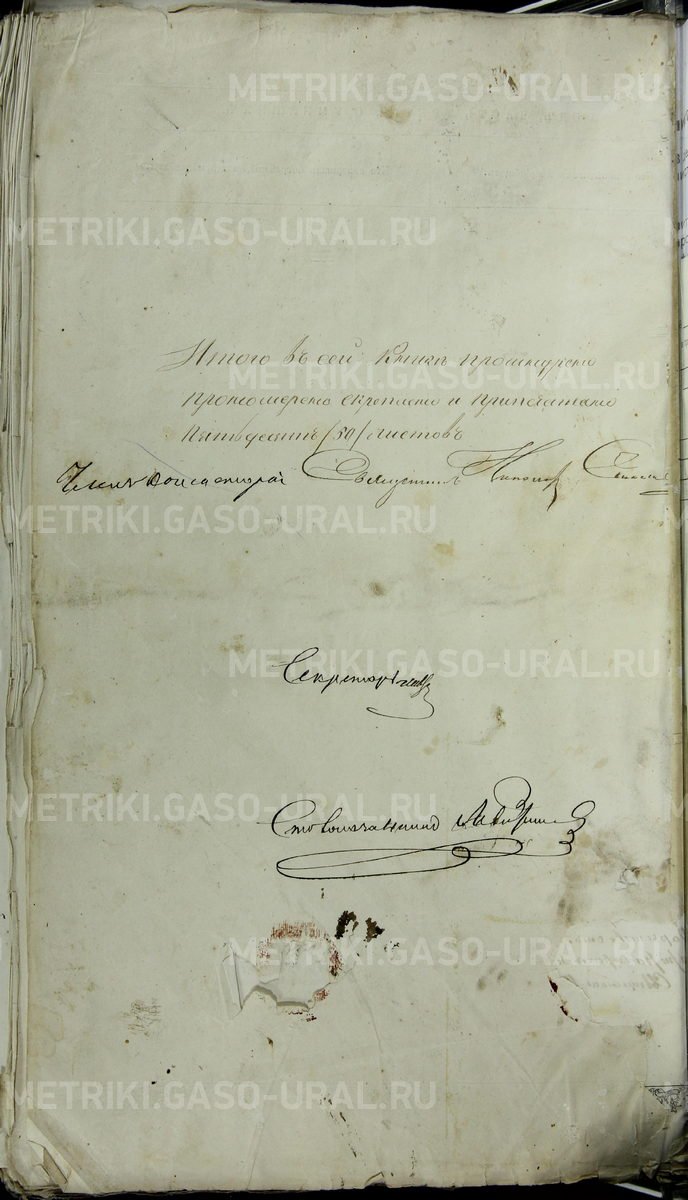 METRIKI.GASO-URAL.RU
METRIKI.GASO-URAL.RU
Итого въ сей Книгѣ прошнурено
METRIKI.GASO-URAL.RU
пронумерено скреплено и припечатано
Пятьдесятъ /50/ листовъ
Членъ Консисторіи Священникъ
METRIKI.GASO-URAL.RU
METRIKI.GASO-URAL.RU
Секретарь
METRIKI.GASO-URAL.RU
Столоначальникъ
METRIKI.GASO-URAL.RU
METRIKI.GASO-URAL.RU